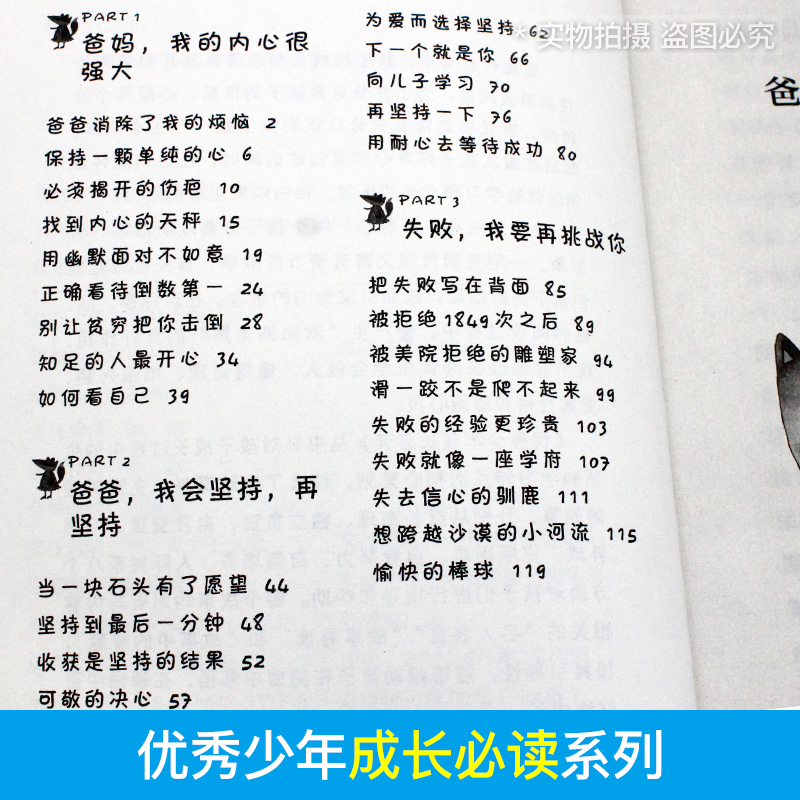 PART 1
爸妈，我的内心很
强大
爸爸消除了我的烦恼 2
保持一颗单纯的心 6
必须揭开的伤疤 10
找到内心的天秤 15
用幽默面对不如意 19
正确看待倒数第一 24
别让贫穷把你击倒 28
知足的人最开心 34
如何看自己 39
PART 2
爸爸，我会坚持，再
坚持
当一块石头有了愿望 44
坚持到最后一分钟 48
收获是坚持的结果 52
可敬的决心 57
为爱而选择坚持 62
下一个就是你 66
向儿子学习 70
再坚持一下 76
用耐心去等待成功 80
PART 3
失败，我要再挑战你
把失败写在背面 85
被拒绝1849次之后 89
被美院拒绝的雕塑家 94
滑一跤不是爬不起来 99
失败的经验更珍贵 103
失败就像一座学府 107
失去信心的驯鹿 111
想跨越沙漠的小河流 115
愉快的棒球 119
*实物拍摄 盗图必究
爸
优秀少年成长必读系列